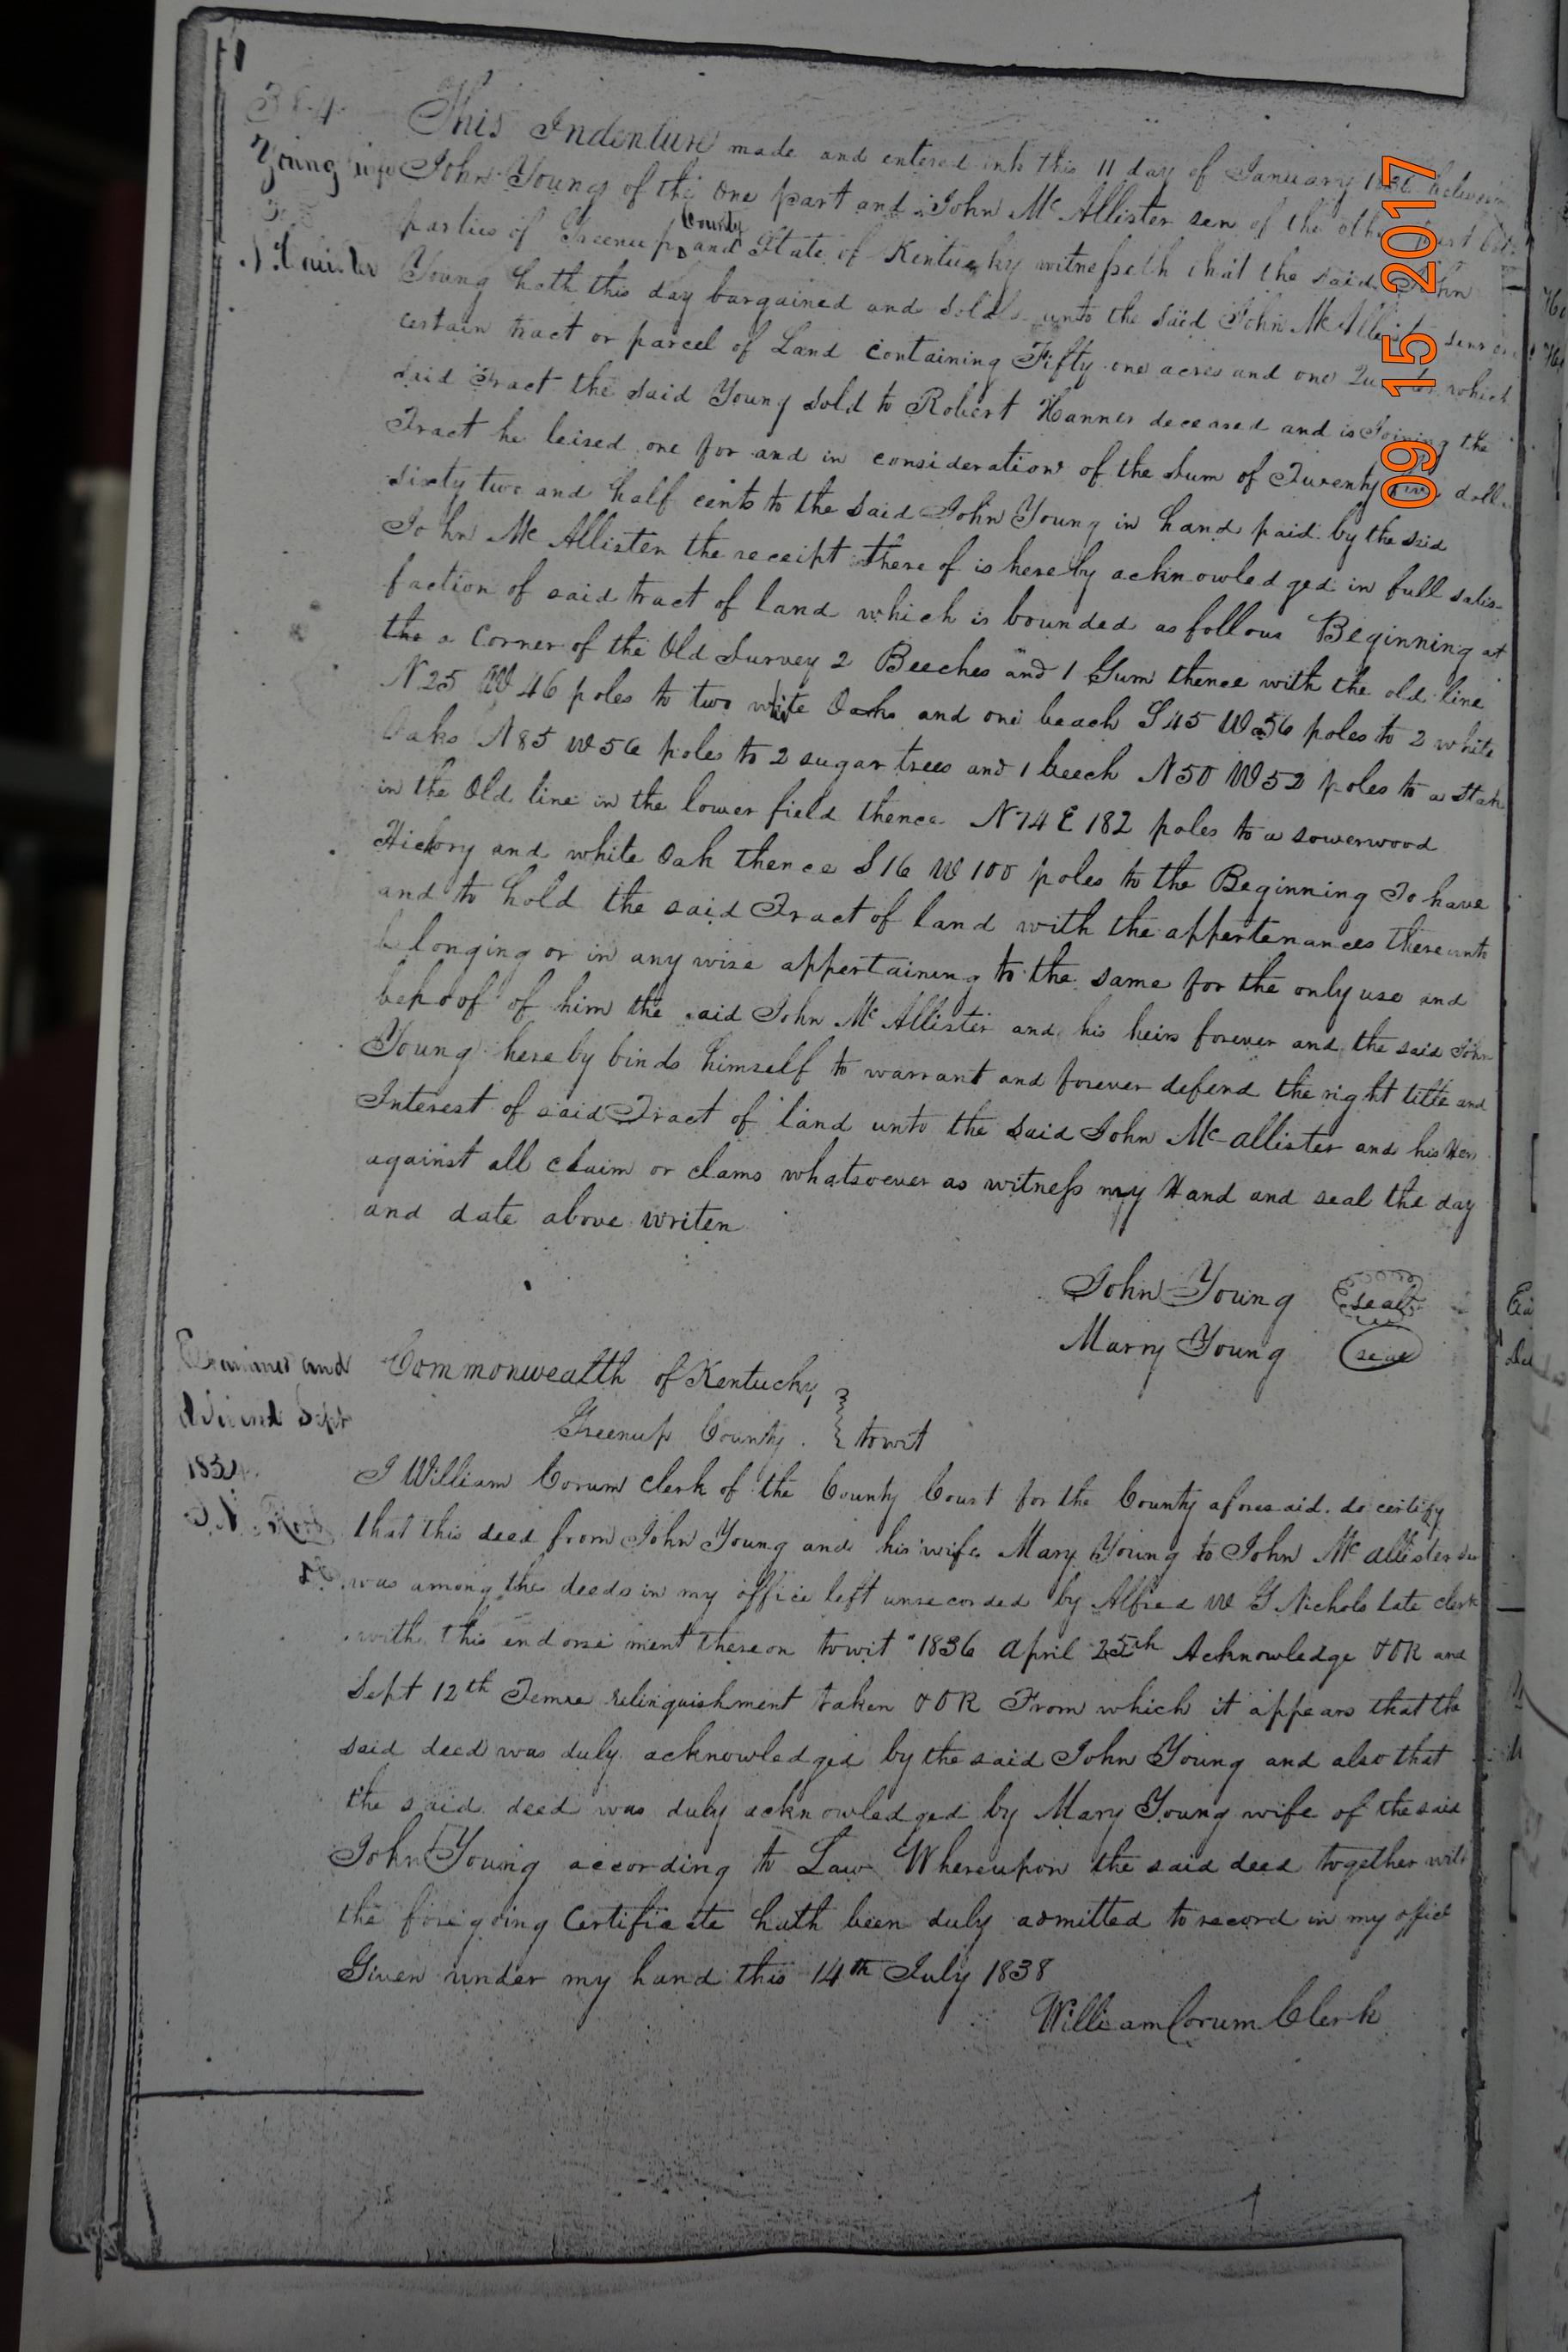 384
This Indenture made and entered into this 11 day of January between
Young wife John Young of the one part and John Mc Allister sen of the other part
parties of Greenup and State of Kentucky witnesseth that the said John
County
Young hath this day bargained and sold unto the said John Mc Allister senr
certain tract or parcel of Land containing Fifty one acres and one which
said Tract the said Young sold to Robert Hanner deceased and is Joining the
Tract he leised one for and in consideration of the Sum of Twenty five doll
sixty two and half cents to the said John Young in hand paid by the said
John Mc Allister the receipt there of is hereby acknowledged in full satis-
faction of said tract of land which is bounded as follows Beginning at
the a Corner of the Old Survey 2 Beeches and 1 Gum thence with the old line
N 25 W 46 poles to two white Oaks and one beach S 45 W 56 poles to 2 white
Oaks N 85 W 56 poles to 2 sugar trees and 1 beech N 50 W 52 poles to a Stak
in the Old line in the lower field thence N 74 E 182 poles to a sowerwood
Hickory and white Oak thence S 16 W 100 poles to the Beginning To have
and to hold the said Tract of land with the appertenances thereunto
belonging or in any wise appertaining to the same for the only use and
behoof of him the said John Mc Allister and his heirs forever and the said John
Young hereby binds himself to warrant and forever defend the right title and
Interest of said Tract of land unto the said John Mc allister and his Heirs
against all claim or clams whatsoever as witness my Hand and seal the day
and date above writen
John Young seal
Marry Young seal
Examined and
Sept
183
Commonwealth of Kentucky
Greenup County. } towit
I William Corum Clerk of the County Court for the County aforesaid. do certify
that this deed from John Young and his wife Mary Young to John Mc allister
was among the deeds in my office left unrecorded by Alfred W G Nichols late clerk
with this endorsement thereon towit "1836 April 25th Acknowledge & OR and
Sept 12th Femze relinquishment taken & OR From which it appears that the
said deed was duly acknowledged by the said John Young and also that
the said deed was duly acknowledged by Mary Young wife of the said
John Young according to Law Whereupon the said deed together with
the foregoing Certificate hath been duly admitted to record in my office
Given under my hand this 14th July 1838
William Corum Clerk
09 15 2017